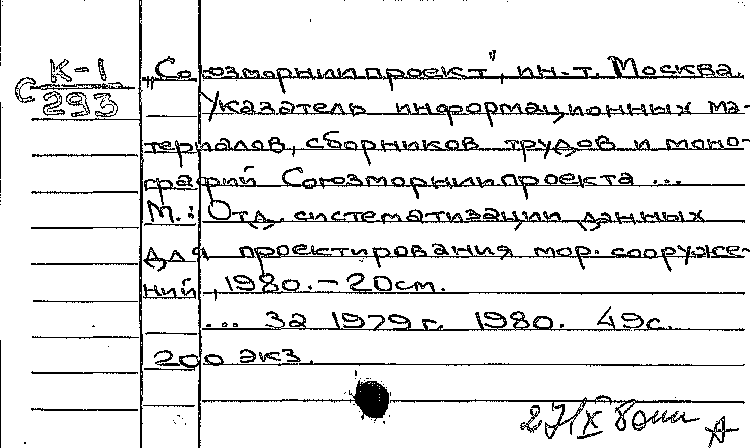 К-1
С 293
„Союзморниипроект", ин-т. Москва.
Указатель информационных ма-
териалов, сборников трудов и моно-
графий Союзморниипроекта ...
М.: Отд. систематизации данных
для проектирования мор. сооруже-
ний, 1980. - 20см.
... за 1979г. 1980. 49с.
200 экз.